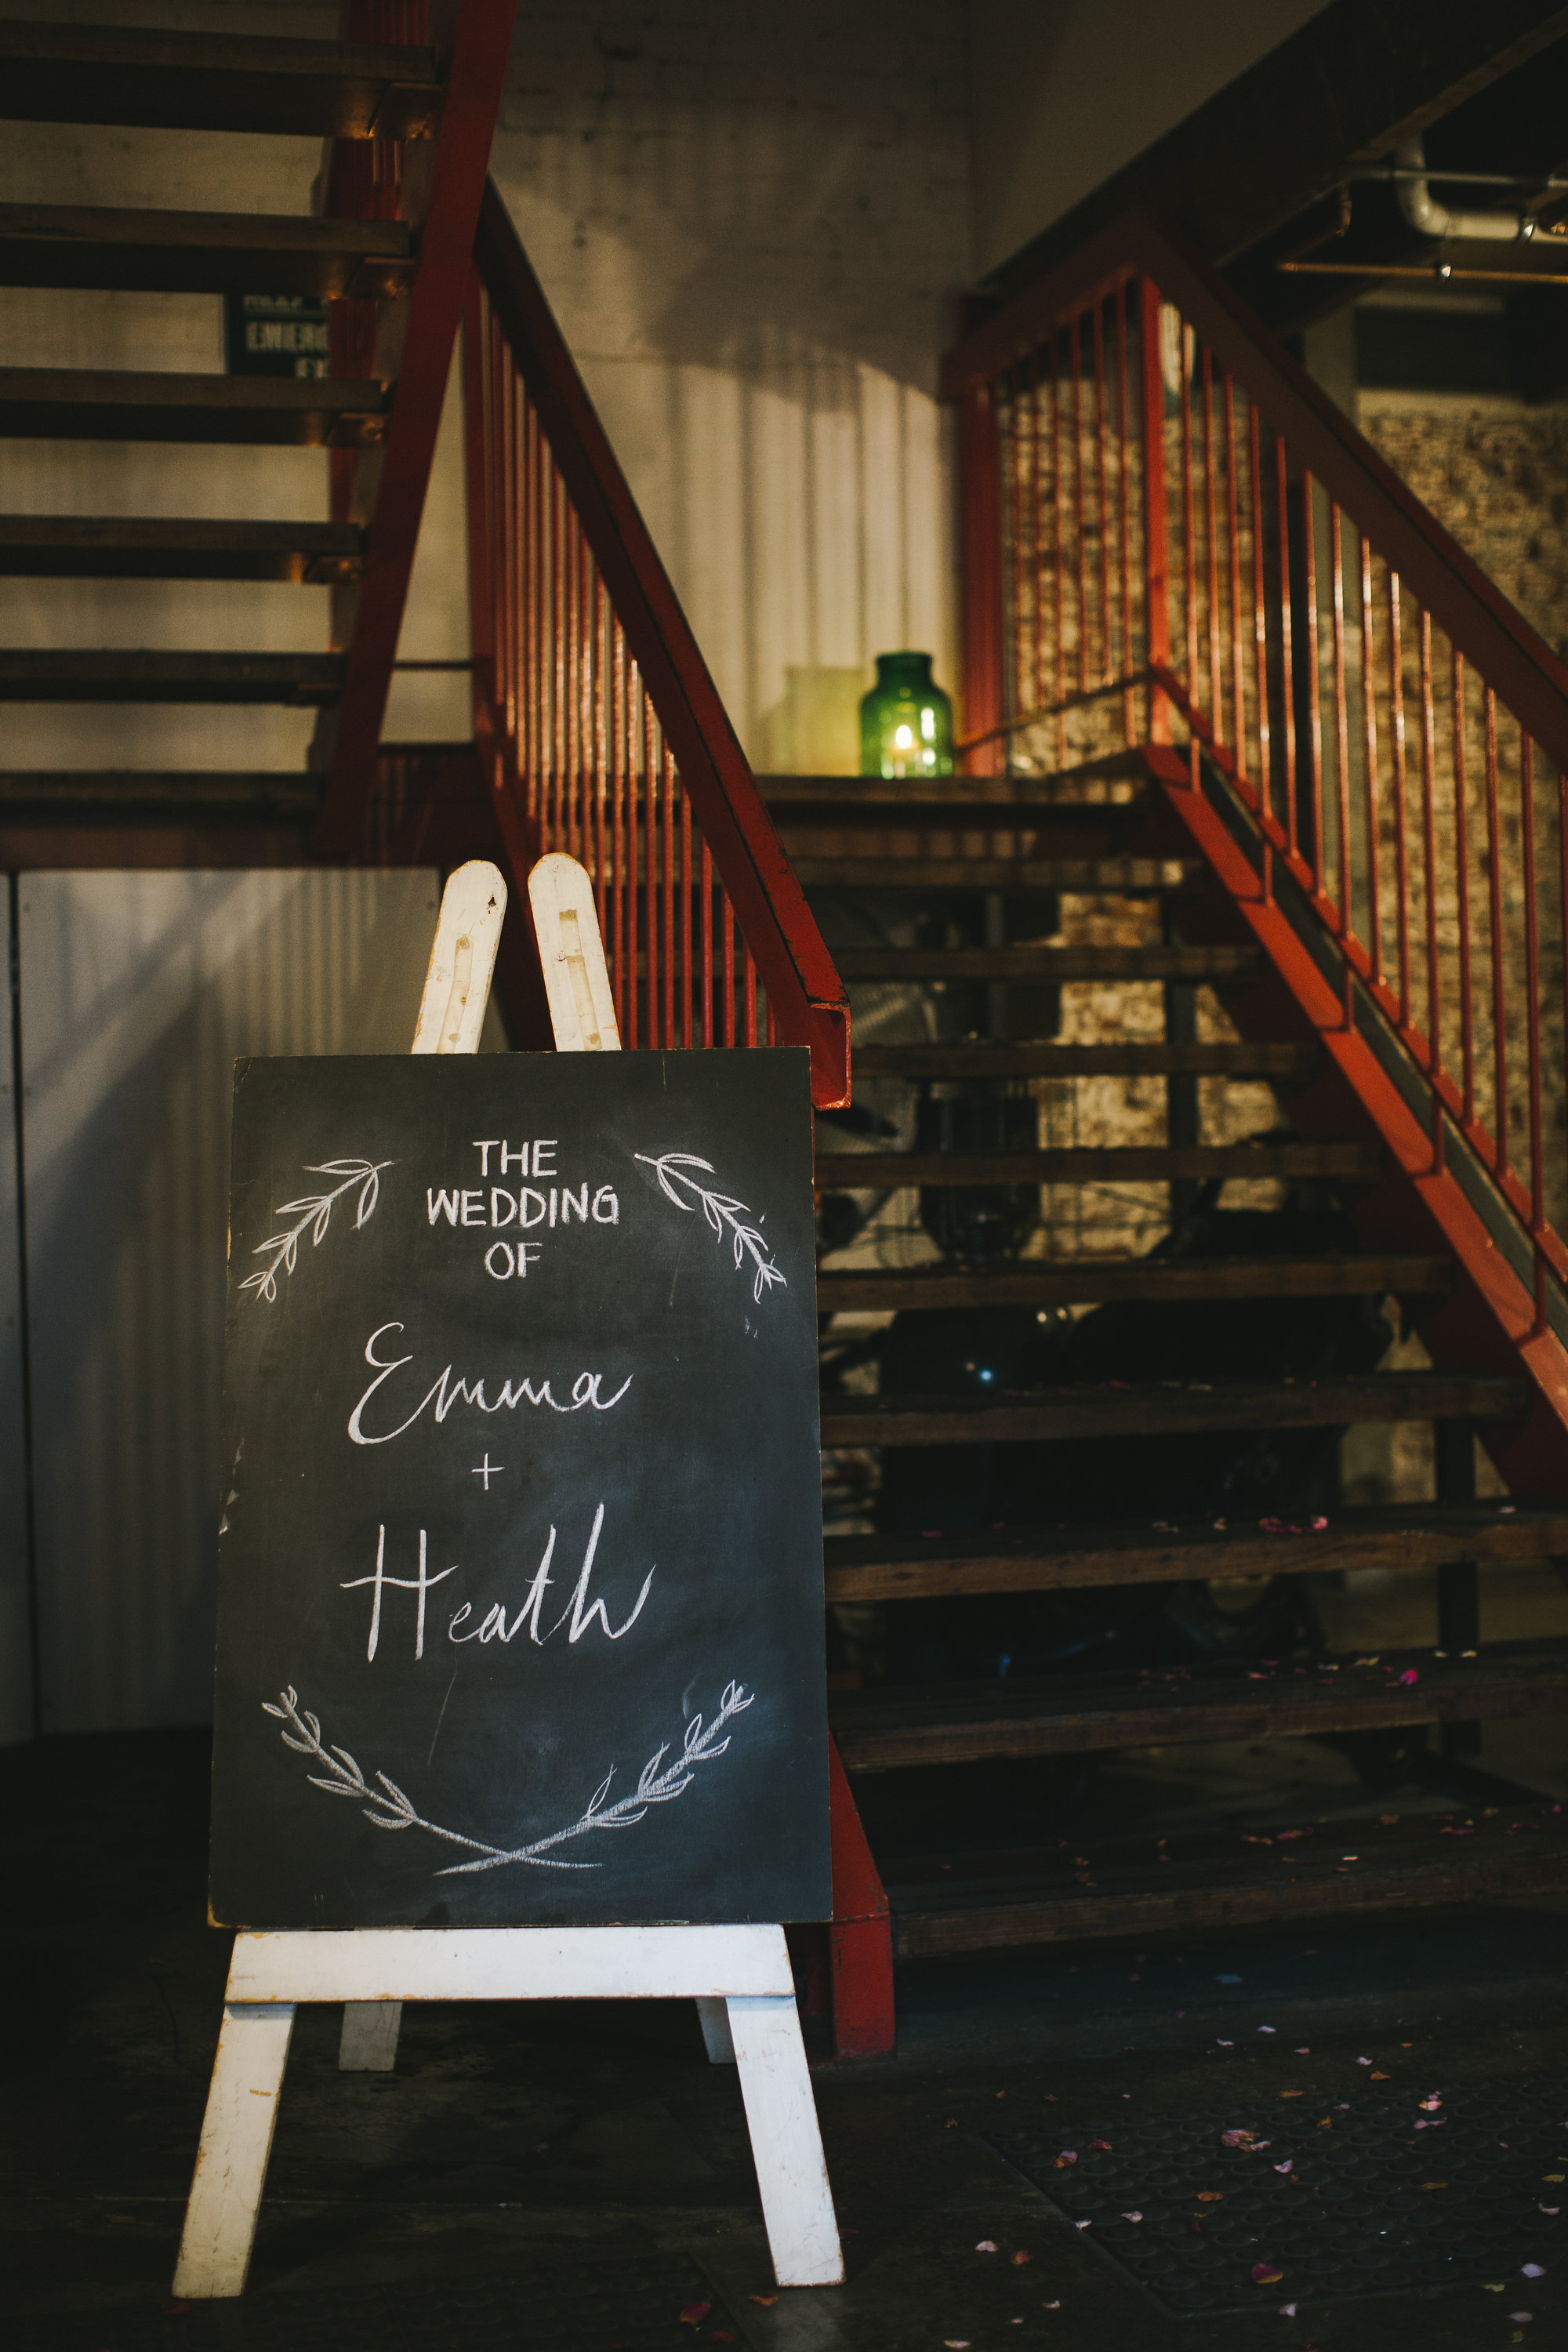 EMERG
THE
WEDDING
OF
Emma
+
Heath